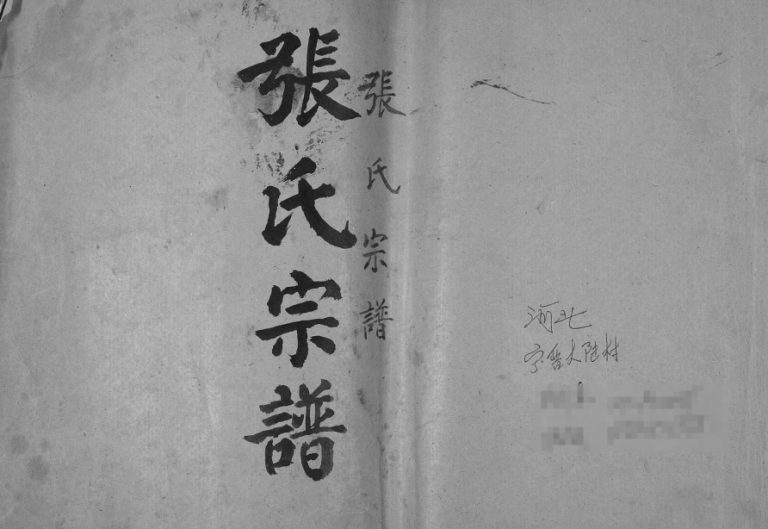 張氏宗譜
張氏宗譜
河北
宁晋大陆村